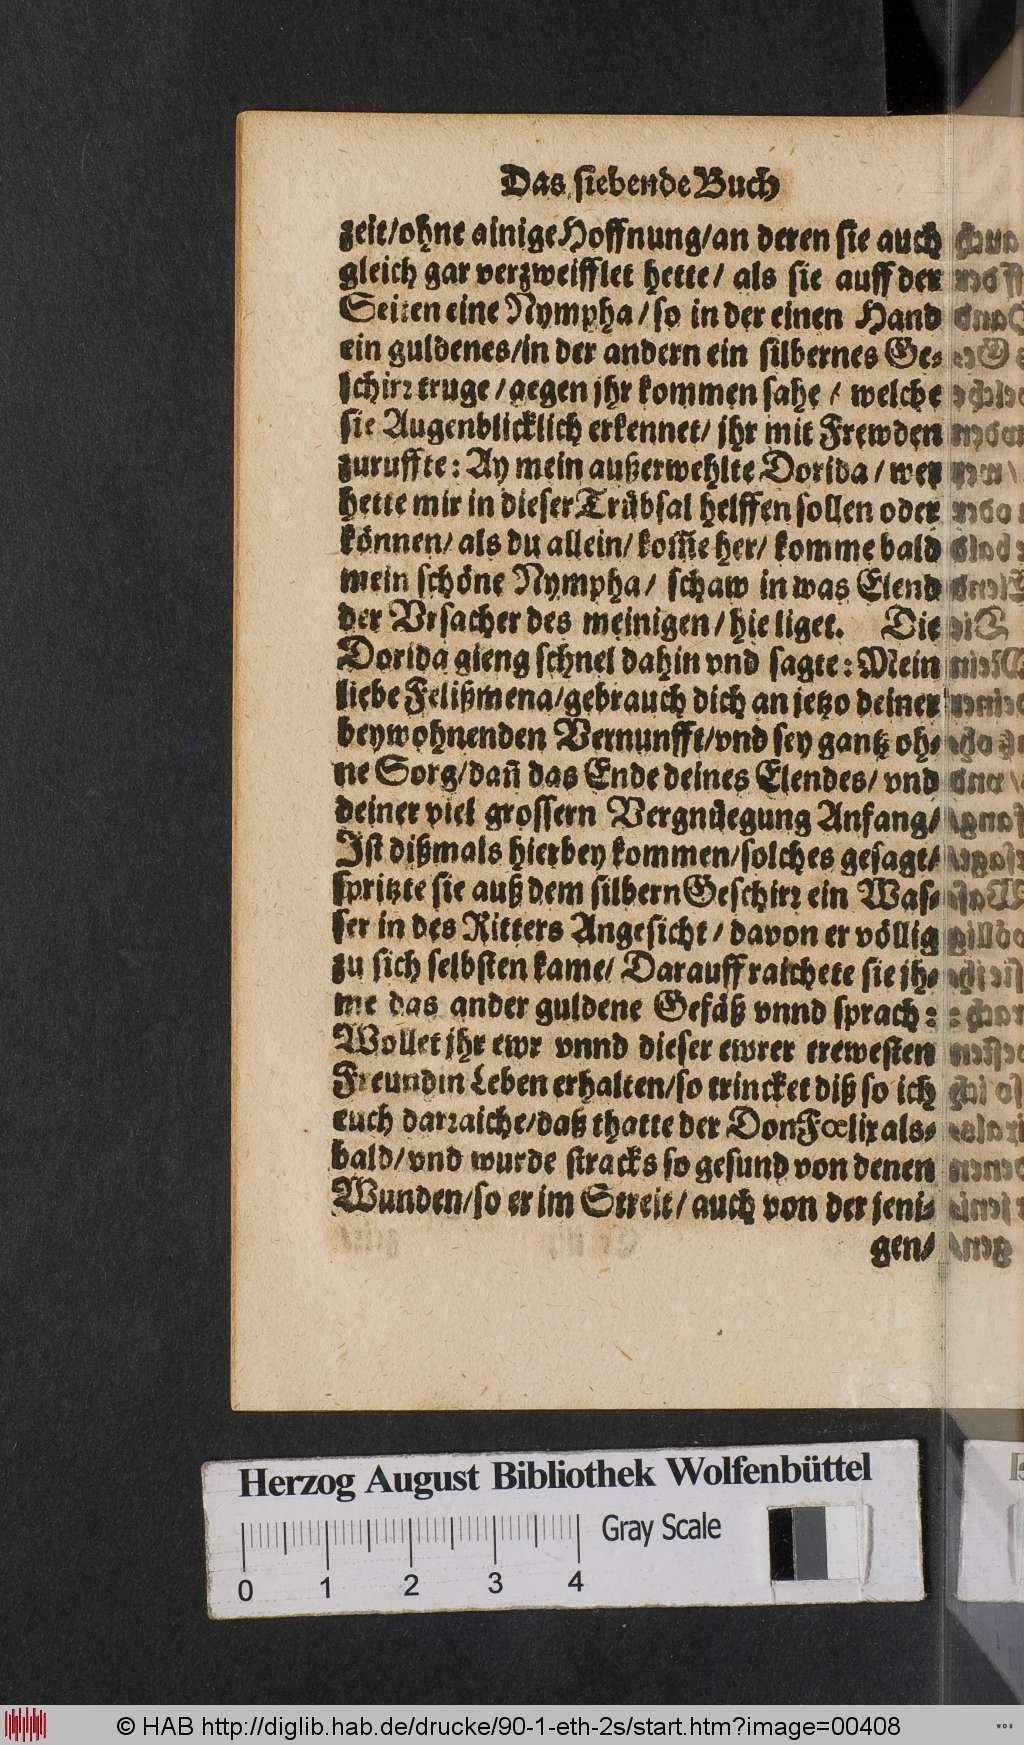 Das siebende Buch
zeit/ohne ainige Hoffnung/an deren sie auch
gleich gar verzweifflet hette/ als sie auff der
Seiten eine Nympha/so in der einen Hand
ein guldenes/in der andern ein silbernes Ge⸗
schirꝛ truge/gegen jhr kommen sahe/ welche
sie Augenblicklich erkennet/ jhr mit Frewden
zuruffte: Ay mein außerwehlte Dorida/wer
hette mir in dieser Trübsal helffen sollen oder
können/ als du allein/kom̃e her/ komme bald
mein schöne Nympha/ schaw in was Elend
der Vrsacher des meinigen/hie liget. Die
Dorida gieng schnel dahin vnd sagte: Mein
liebe Felißmena/gebrauch dich an jetzo deiner
beywohnenden Vernunfft/vnd sey gantz oh⸗
ne Sorg/dañ das Ende deines Elendes/ vnd
deiner viel grossern Vergnüegung Anfang/
Ist dißmals hierbey kommen/solches gesagt/
spritzte sie auß dem silbern Geschirꝛ ein Was⸗
ser in des Ritters Angesicht/ davon er völlig
zu sich selbsten kame/ Darauff raichete sie jh⸗
me das ander guldene Gefäß vnnd sprach:
Wollet jhr ewr vnnd dieser ewrer trewesten
Freundin Leben erhalten/so trincket diß so ich
euch darꝛaiche/daß thatte der Don Fœlix als⸗
bald/vnd wurde stracks so gesund von denen
Wunden/so er im Streit/ auch von der jeni⸗
gen/
Herzog August Bibliothek Wolfenbüttel
Gray Scale
0 1 2 3 4
© HAB http://diglib.hab.de/drucke/90-1-eth-2s/start.htm?image=00408